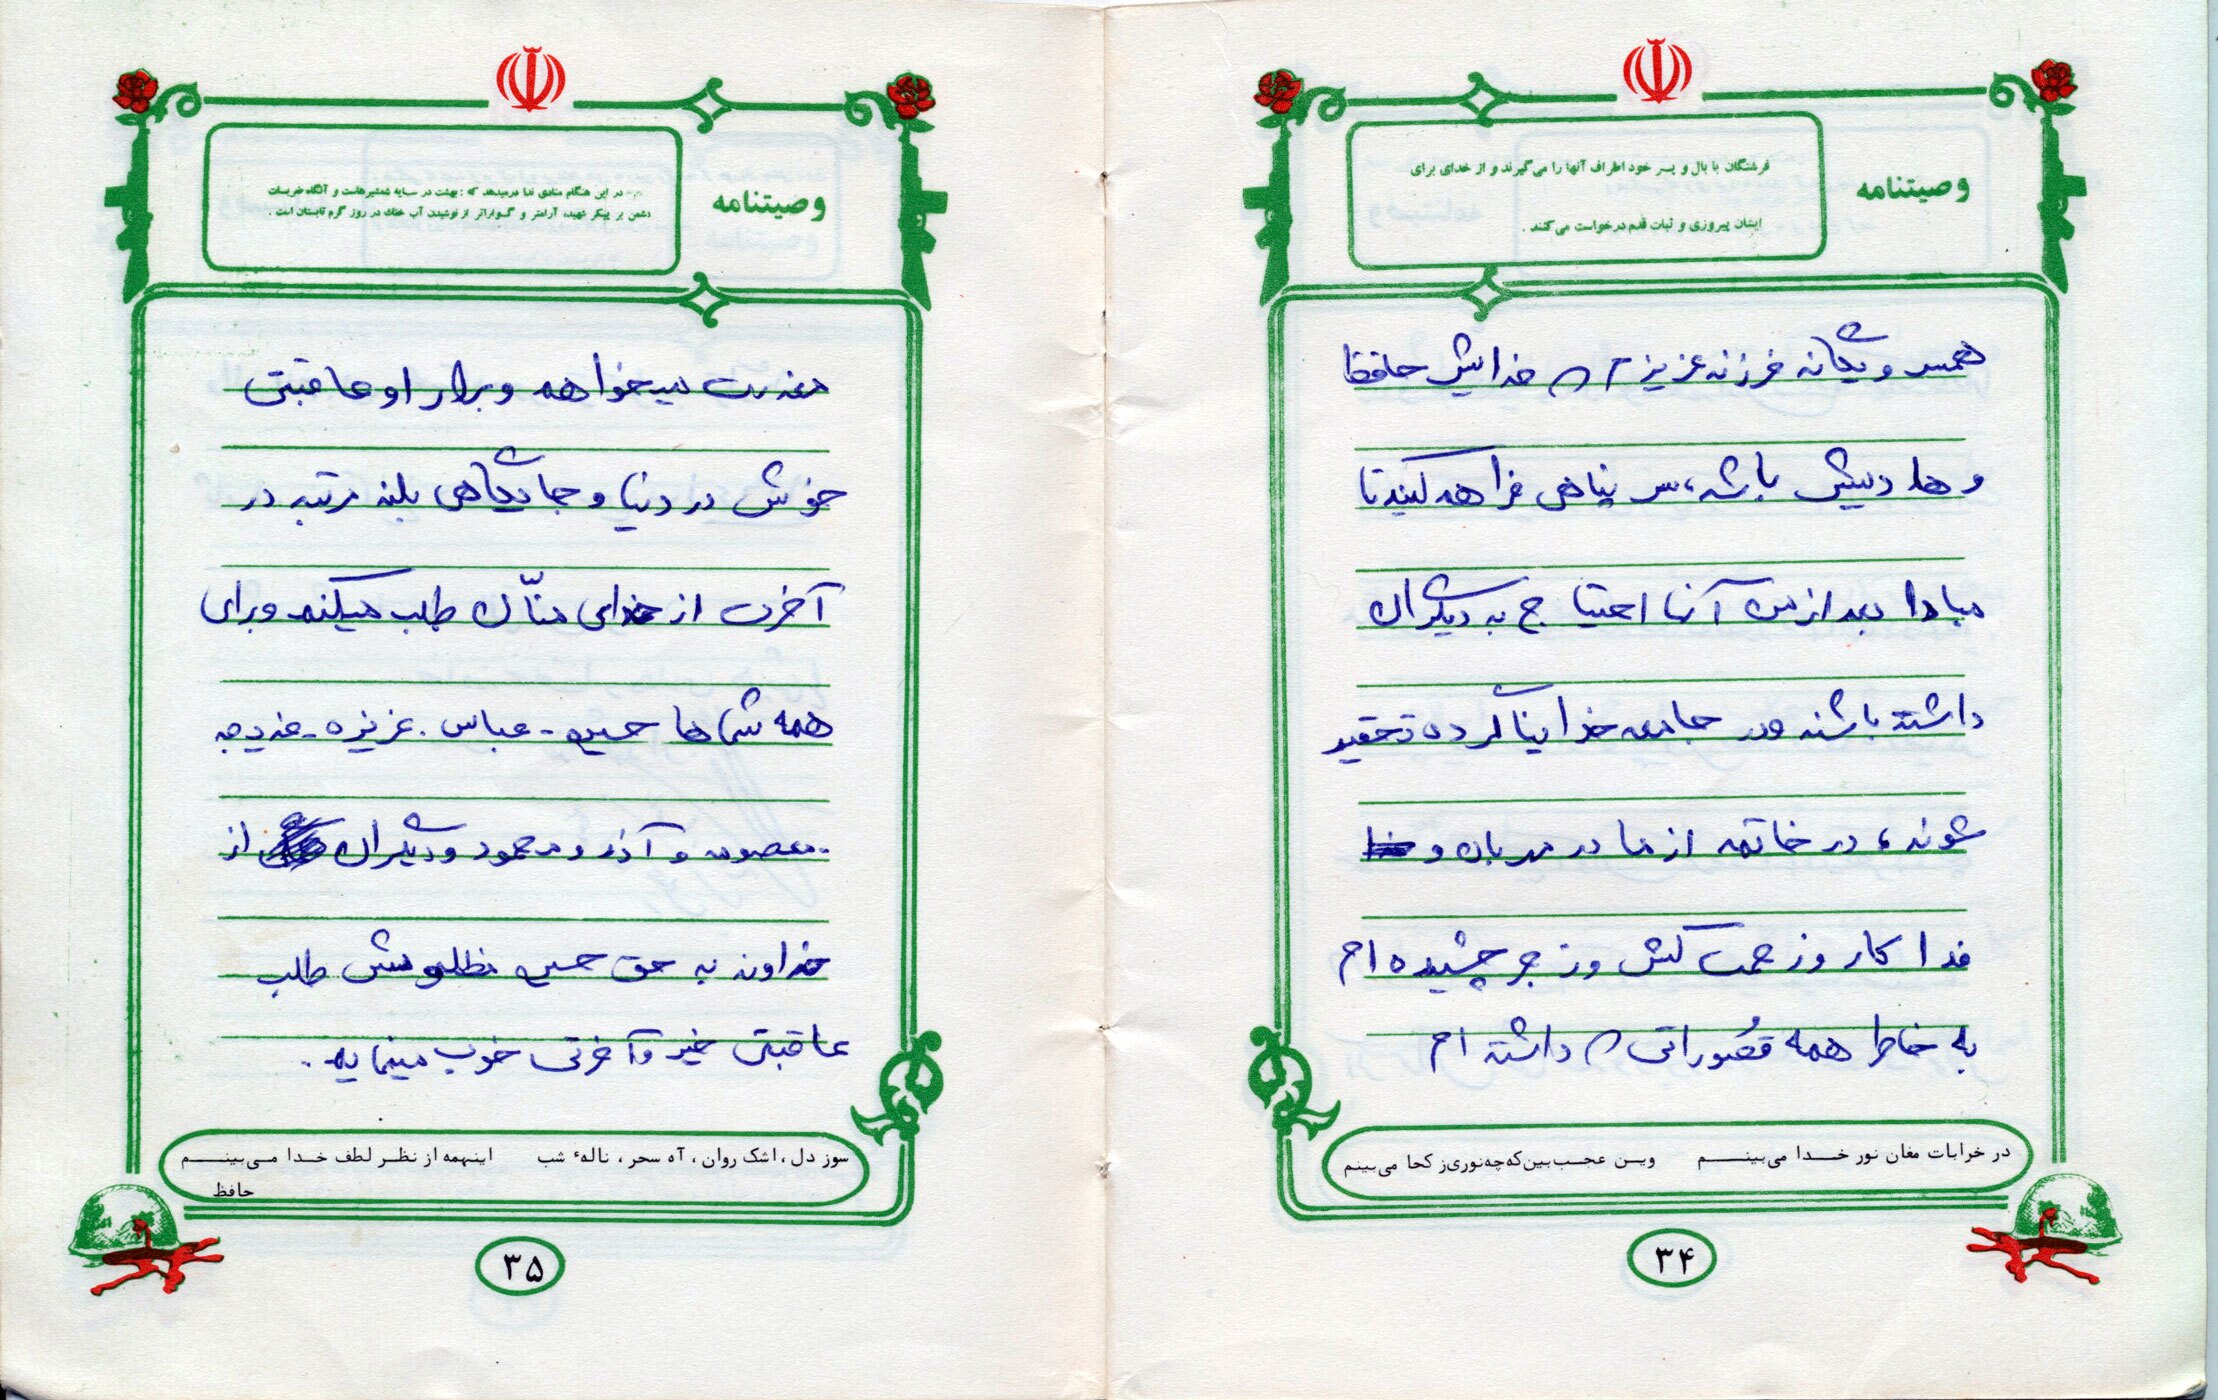 وصیتنامه
فرشتگان با بال و پر خود اطراف آنها را می‌گیرند و از خدای برای
ایشان پیروزی و ثبات قدم درخواست می‌کنند .
همسر و یگانه فرزند عزیزم که خدایش حافظ
و هادیش باشد، سر پناهی فراهم کنید تا
مبادا بعد از من آنها احتیاج به دیگران
داشته باشند و در جامعه خدایناکرده تحقیر
شوند، در خاتمه از مادر مهربان و
فداکار و زحمت کش و زجر چشیده ام
به خاطر همه قصوراتی که داشته ام
در خرابات مغان نور خدا می‌بینم وین عجب‌بین‌که‌چه‌نوری‌ز کجا می‌بینم
۳۴
وصیتنامه
در این هنگام منادی ندا در میدهد که : بهشت در سایه شمشیرهاست و آنگاه ضربات
دشمن بر پیکر شهید، آرامتر و گواراتر از نوشیدن آب خنک در روز گرم تابستان است .
معذرت میخواهم و برای او عاقبتی
خوش در دنیا و جایگاهی بلند مرتبه در
آخرت از خدای منّان طلب میکنم و برای
همه شماها حسین - عباس - عزیزه - خدیجه
- معصومه و آذر و محمود و دیگران از
خداوند به حق حسین مظلومش طلب
عاقبتی خیر و آخرتی خوب مینمایم.
سوز دل ، اشک روان ، آه سحر ، نالهٔ شب اینهمه از نظر لطف خدا می‌بینم
حافظ
۳۵